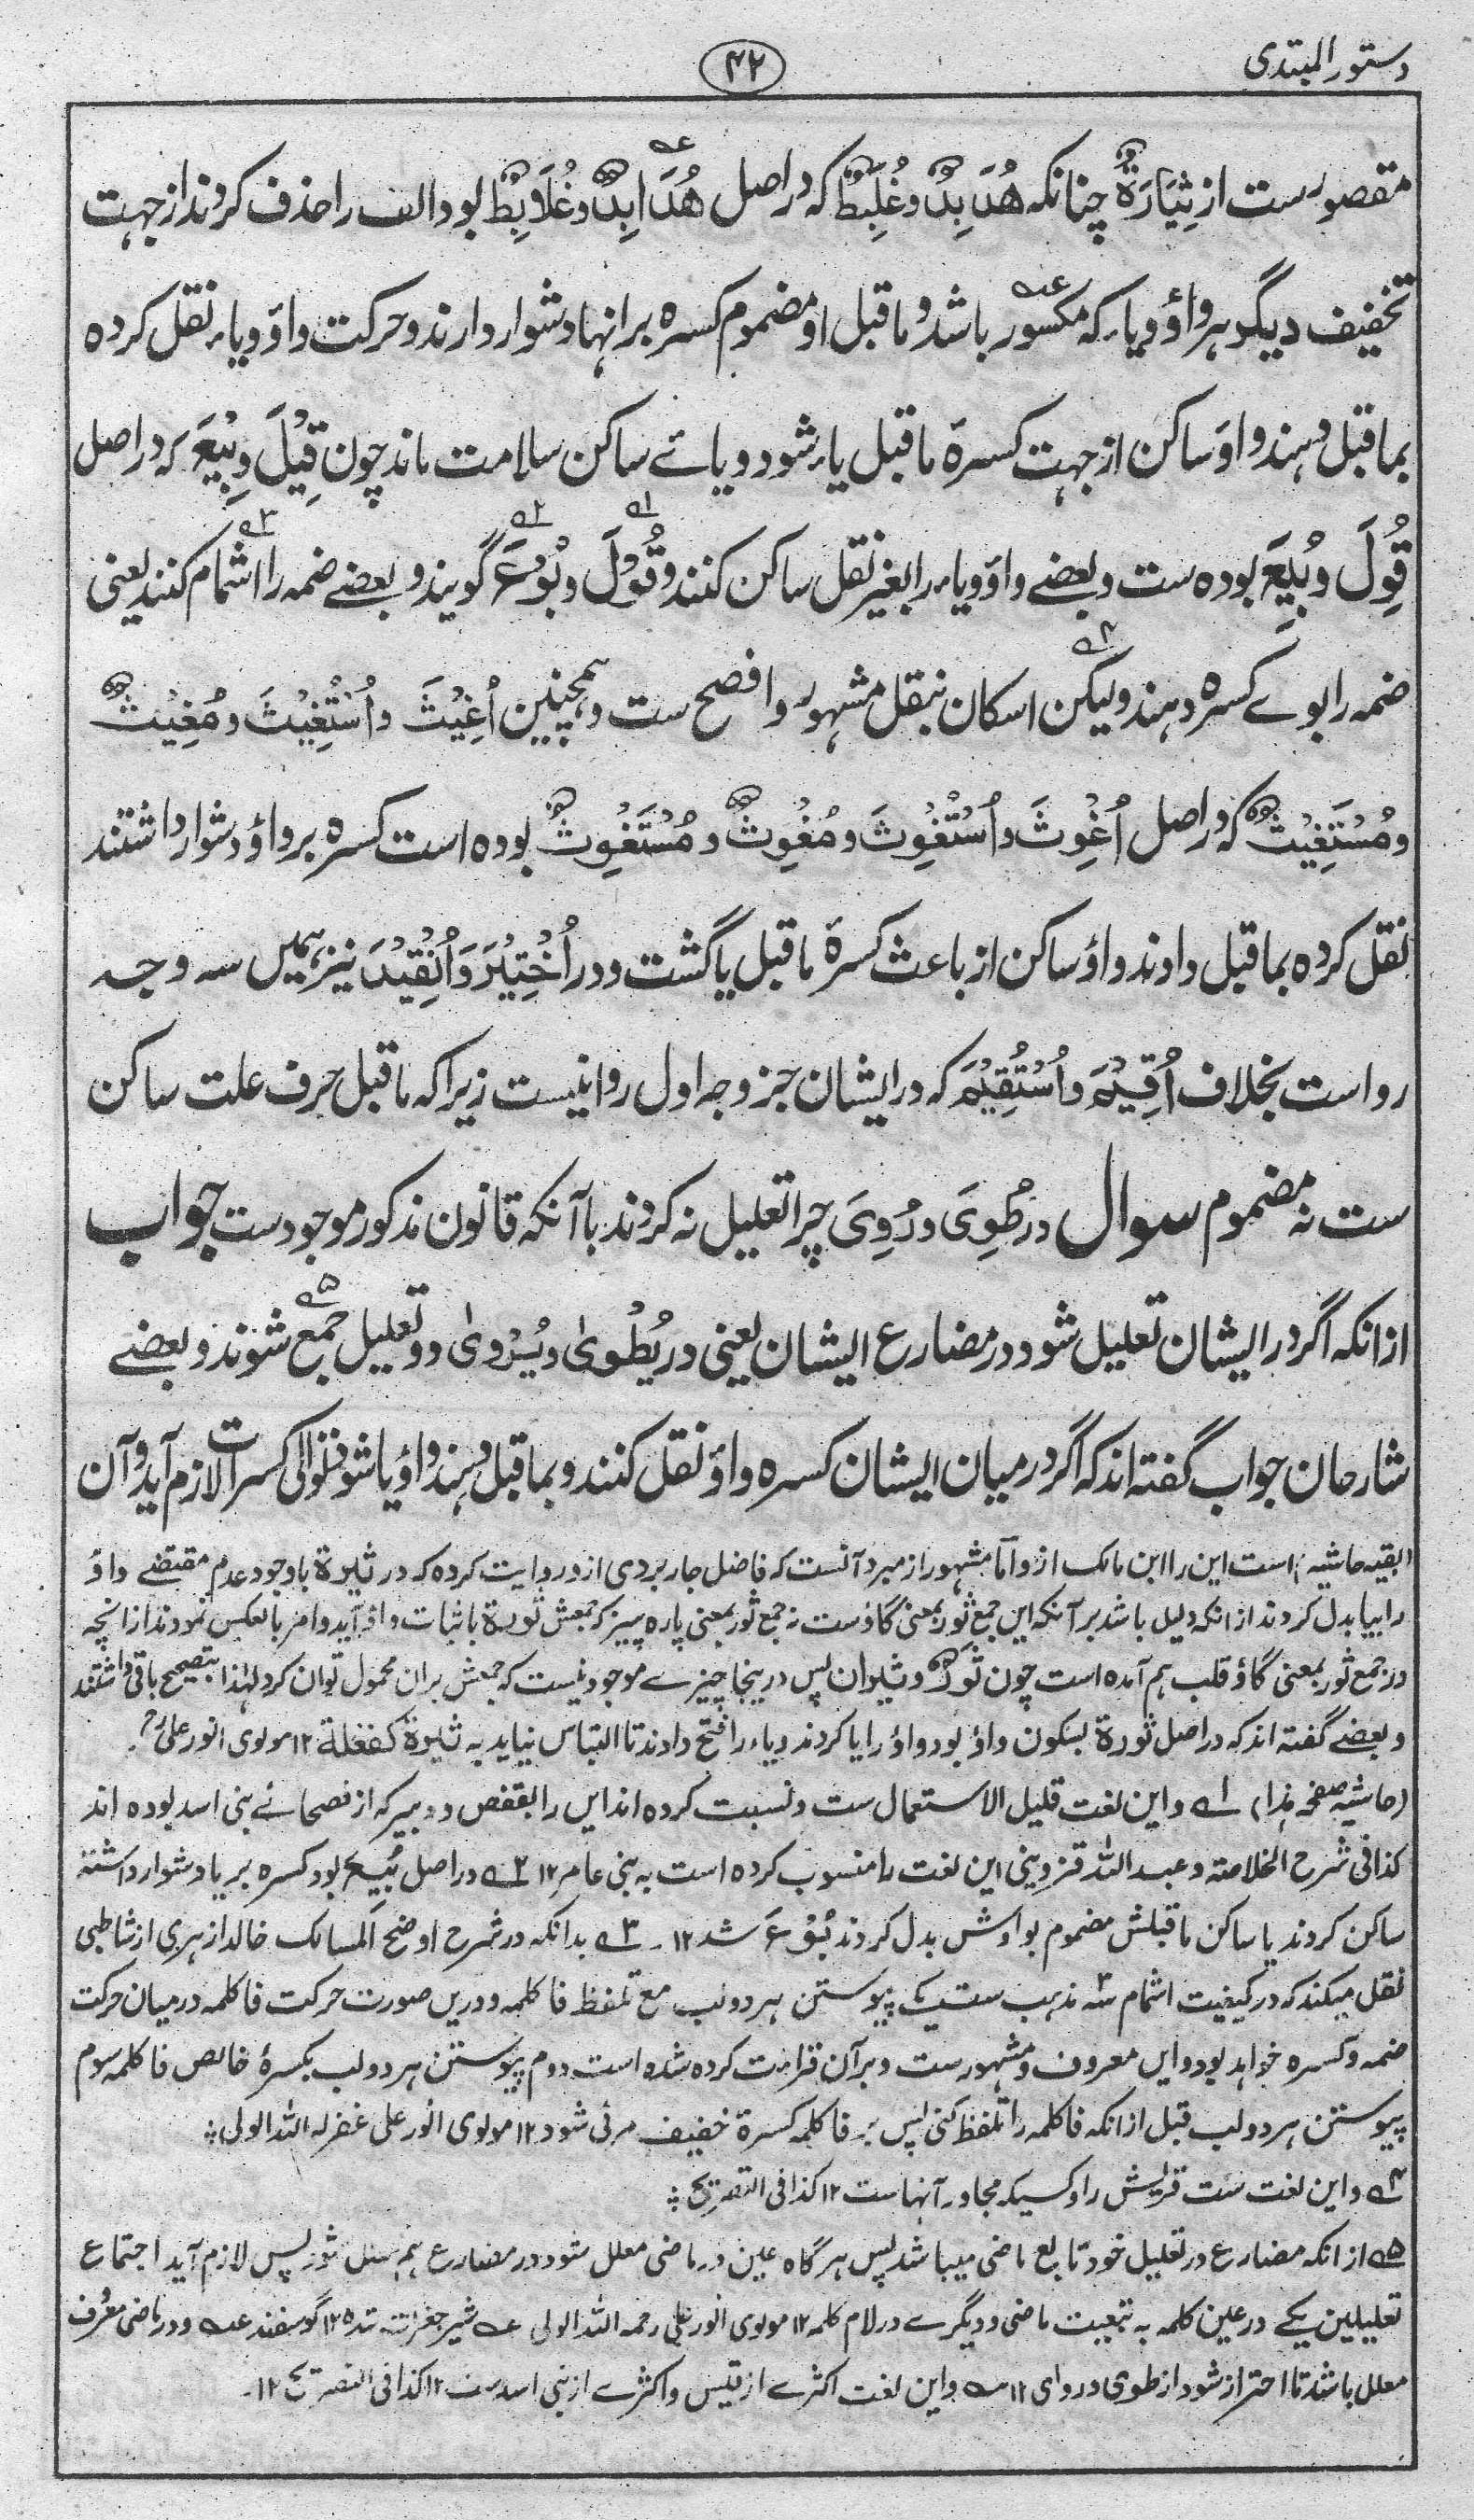 دستور المبتدی
۴۲
مقصور ست از ثِیَارَةٌ چنانکہ هُدَبِدٌ و غُلَبِطٌ کہ در اصل هُدَابِدٌ و غُلَابِطٌ بود الف را حذف کردند از جہت
تخفیف دیگر ہر واؤ و یاء کہ مکسور باشد و ما قبل او مضموم کسرہ بر انہا دشوار دارند و حرکت واؤ و یاء نقل کردہ
بما قبل دہند و واؤ ساکن از جہت کسرۂ ما قبل یاء شود و یائے ساکن سلامت ماند چون قِیْلَ و بِیْعَ کہ در اصل
قُوِلَ و بُیِعَ بودہ ست و بعضے واؤ و یاء را بغیر نقل ساکن کنند و قُوْلَ و بُوْعَ گویند و بعضے ضمہ را اشمام کنند یعنی
ضمہ را بوے کسرہ دہند و لیکن اسکان بنقل مشہور و افصح ست و ہمچنین اُغِیْثَ و اُسْتُغِیْثَ و مُغِیْثٌ
و مُسْتَغِیْثٌ کہ در اصل اُغْوِثَ و اُسْتُغْوِثَ و مُغْوِثٌ و مُسْتَغْوِثٌ بودہ است کسرہ بر واؤ دشوار داشتند
نقل کردہ بما قبل دادند واؤ ساکن از باعث کسرۂ ما قبل یا گشت و در اُخْتِیْرَ وَ اُنْقِیْدَ نیز ہمیں سہ وجہ
رواست بخلاف اُقِیْمَ و اُسْتُقِیْمَ کہ در ایشان جز وجہ اول روا نیست زیرا کہ ما قبل حرف علت ساکن
ست نہ مضموم سوال در طُوِیَ و رُوِیَ چرا تعلیل نہ کردند با آنکہ قانون مذکور موجود ست جواب
از انکہ اگر در ایشان تعلیل شود در مضارع ایشان یعنی در یُطْوٰی و یُرْوٰی دو تعلیل جمع شوند و بعضے
شارحان جواب گفتہ اند کہ اگر در میان ایشان کسرہ واؤ نقل کنند و بما قبل دہند واؤ یا شود توالی کسرات لازم آید و آن
(بقیہ حاشیہ) است این را ابن مالک از و اما مشہور از مبرد آنست کہ فاضل جاربردی ازو روایت کردہ کہ در ثیرة باوجود عدم مقتضے واؤ
را بیا بدل کردند از انکہ دلیل باشد بر آنکہ این جمع ثور بمعنی گاؤ ست نہ جمع ثور بمعنی پارہ پنیر کہ جمعش ثورة باثبات واؤ آید و امر بالعکس نمودند از انچہ
در جمع ثور بمعنی گاؤ قلب ہم آمدہ است چون ثور و ثیران پس درینجا چیزے موجود نیست کہ جمعش بران محمول توان کرد لہذا بتصحیح باقی داشتند
و بعضے گفتہ اند کہ در اصل ثورة بسکون واؤ بود واؤ را یا کردند و یاء را فتح دادند تا التباس نیاید بہ ثیرة کفعلة ۱۲ مولوی انور علیؒ
(حاشیہ صفحہ ہذا) ۱؎ و این لغت قلیل الاستعمال ست و نسبت کردہ اند این را بفقعس و دبیر کہ از فصحائے بنی اسد بودہ اند
کذا فی شرح الخلاصۃ و عبد اللہ قزوینی این لغت را منسوب کردہ است بہ بنی عامر ۱۲ ۲؎ در اصل بُیِعَ بود کسرہ بر یا دشوار داشتہ
ساکن کردند یا ساکن ما قبلش مضموم بواوش بدل کردند بُوْعَ شد ۱۲۔ ۳؎ بدانکہ در شرح اوضح المسالک خالد ازہری از شاطبی
نقل میکند کہ در کیفیت اشمام سہ مذہب ست یکے پیوستن ہر دو لب مع تلفظ فا کلمہ و دریں صورت حرکت فا کلمہ درمیان حرکت
ضمہ و کسرہ خواہد بود و این معروف و مشہور ست و بر آن قراءت کردہ شدہ است دوم پیوستن ہر دو لب بکسرۂ خالص فا کلمہ سوم
پیوستن ہر دو لب قبل از انکہ فا کلمہ را تلفظ کنی پس بر فا کلمہ کسرۂ خفیف مرئی شود ۱۲ مولوی انور علی غفر لہ اللہ الولی
۴؎ و این لغت ست قریش را و کسیکہ مجاور آنہاست ۱۲ کذا فی التصریح
۵؎ از انکہ مضارع در تعلیل خود تابع ماضی میباشد پس ہر گاہ عین در ماضی معلل شود در مضارع ہم معلل شود پس لازم آید اجتماع
تعلیلین یکے در عین کلمہ بہ تبعیت ماضی و دیگرے در لام کلمہ ۱۲ مولوی انور علی رحمہ اللہ الولی عہ شیر جغرات شدہ ۱۲ گوسفند عہ و در ماضی معرف
معلل باشد تا احتراز شود از طوی و روی ۱۲ و این لغت اکثرے از قیس و اکثرے از بنی اسد ست ۱۲ کذا فی التصریح ۱۲